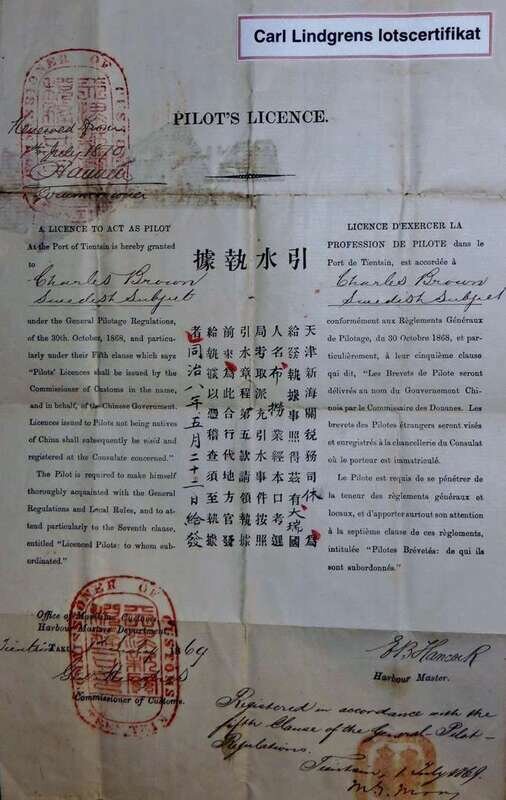 Carl Lindgrens lotscertifikat
PILOT'S LICENCE.
COMMISSIONER OF CUSTOMS
Renewed
July 1870
Commissioner
A LICENCE TO ACT AS PILOT
At the Port of Tientsin is hereby granted
to
Charles Brown
Swedish Subject
under the General Pilotage Regulations,
of the 30th. October, 1868, and particu-
larly under their Fifth clause which says
"Pilots' Licences shall be issued by the
Commissioner of Customs in the name,
and in behalf, of the Chinese Government.
Licences issued to Pilots not being natives
of China shall subsequently be visé'd and
registered at the Consulate concerned."
The Pilot is required to make himself
thoroughly acquainted with the General
Regulations and Local Rules, and to at-
tend particularly to the Seventh clause,
entitled "Licenced Pilots: to whom sub-
ordinated."
據執水引
天津新海關稅務司休為
給發執據事照得茲有大瑞國
人名布撈業經本口考選
局考取派充引水事件按照
引水章程第五款請領執據
前來為此合行代地方官發
給執據以憑稽查須至執據
者同治八年五月二十二日給發
LICENCE D'EXERCER LA
PROFESSION DE PILOTE dans le
Port de Tientsin, est accordée à
Charles Brown
Swedish Subject
conformément aux Règlements Généraux
de Pilotage, du 30 Octobre 1868, et par-
ticulièrement, à leur cinquième clause
qui dit, "Les Brevets de Pilote seront
délivrés au nom du Gouvernement Chi-
nois par le Commissaire des Douanes. Les
brevets des Pilotes étrangers seront visés
et enregistrés à la chancellerie du Consulat
où le porteur est immatriculé.
Le Pilote est requis de se pénétrer de
la teneur des règlements généraux et
locaux, et d'apporter surtout son attention
à la septième clause de ces règlements,
intitulée "Pilotes Brévelés: de qui ils
sont subordonnés."
COMMISSIONER OF CUSTOMS
TIENTSIN
Office of Maritime Customs
Harbour Masters Department
Tientsin July 1869
Commissioner of Customs.
E B Hancock
Harbour Master.
Registered in accordance with the
fifth Clause of the General Pilot-
Regulations.
Tientsin, 1 July 1869.